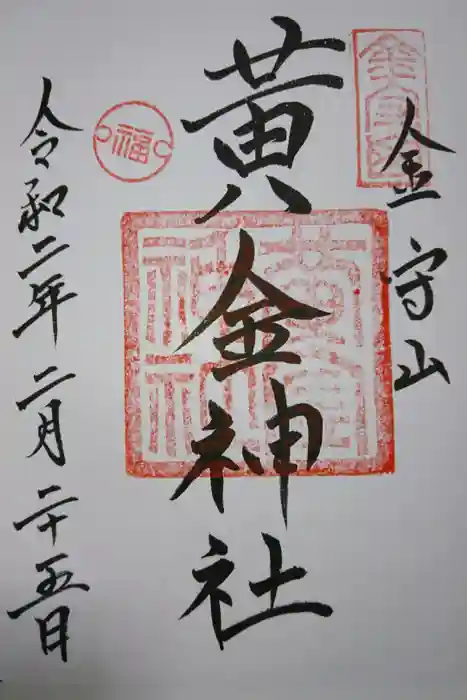 金守山
黄金神社
令和二年二月二十五日
福